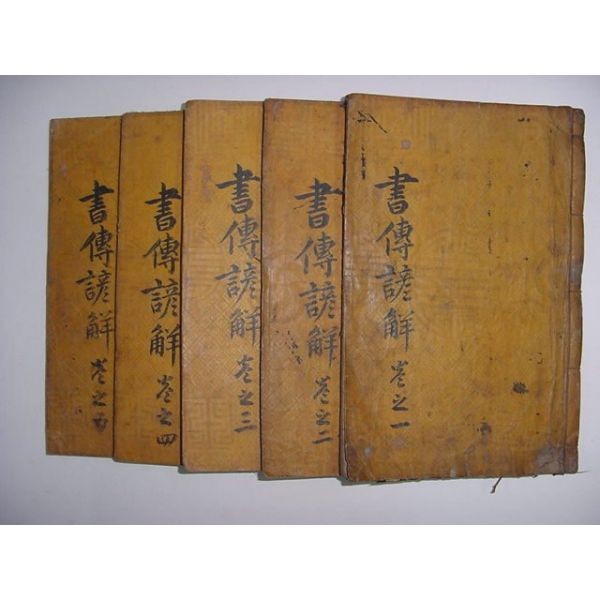 書傳諺解 卷之一
書傳諺解 卷之二
書傳諺解 卷之三
書傳諺解 卷之四
書傳諺解 卷之五